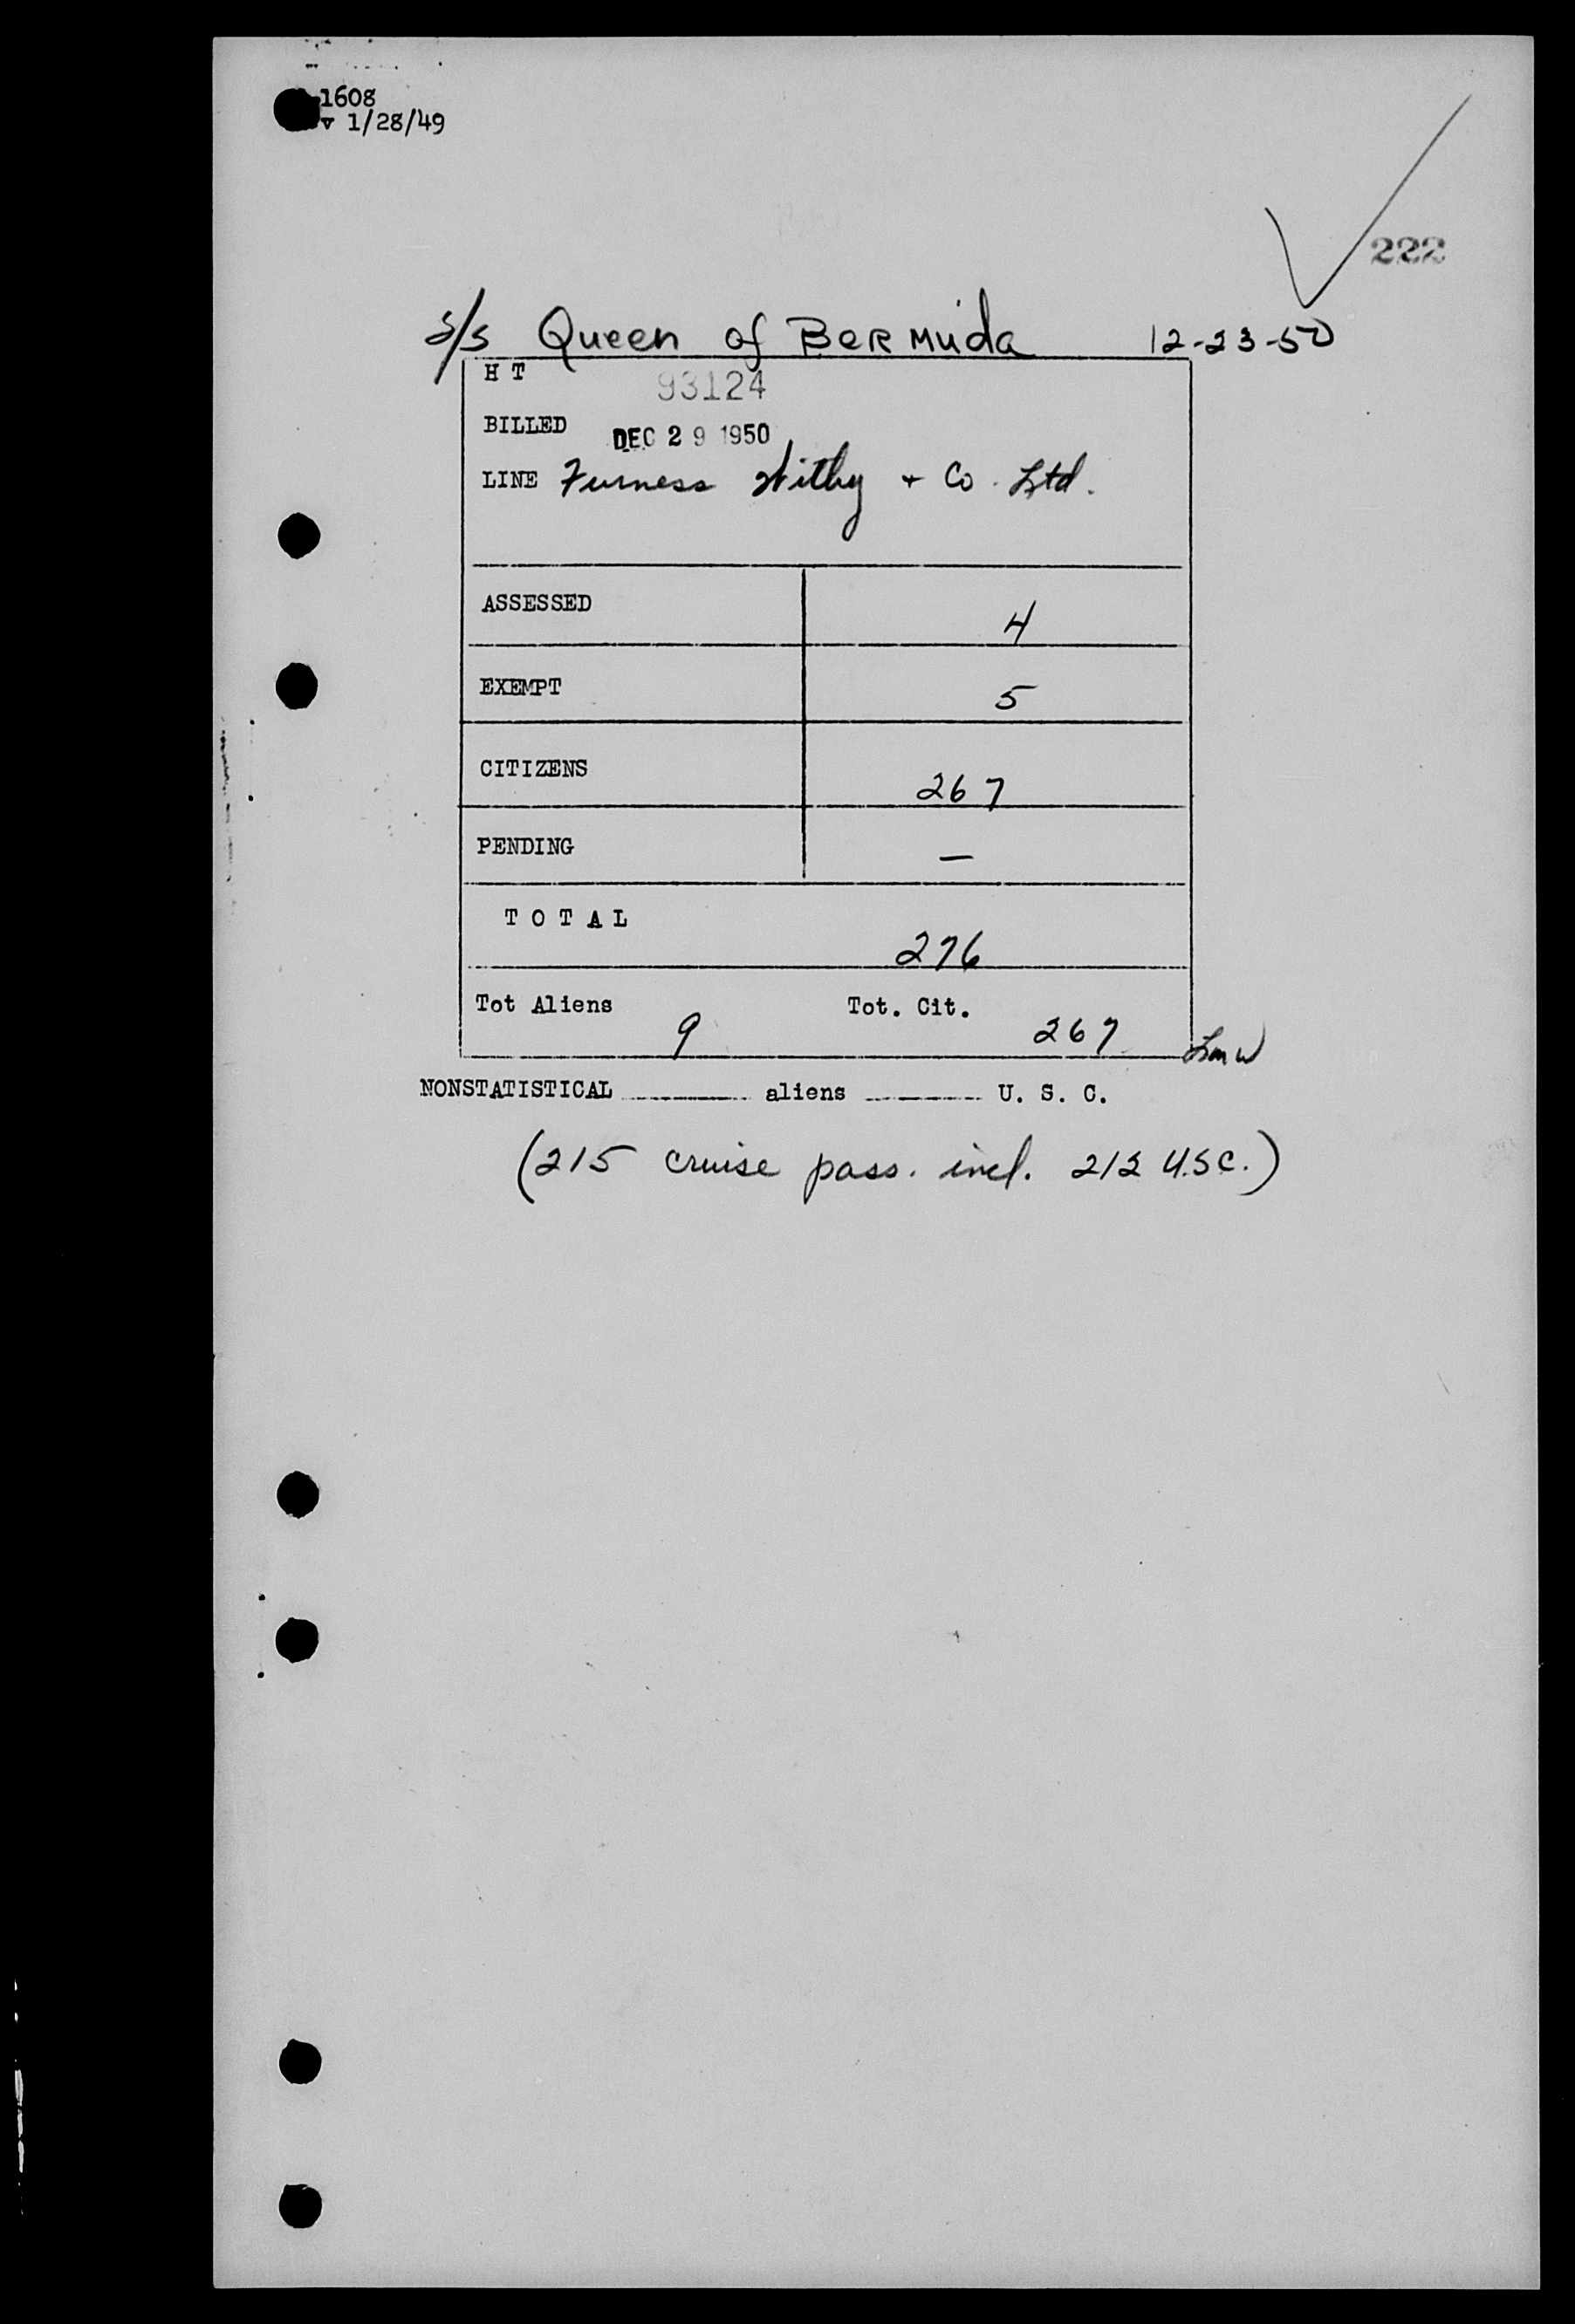 1608
v 1/28/49
222
S/S Queen of BERMUDA 12-23-50
H T 93124
BILLED DEC 29 1950
LINE Furness Withy + Co. Ltd.
ASSESSED 4
EXEMPT 5
CITIZENS 267
PENDING —
T O T A L 276
Tot Aliens 9 Tot. Cit. 267
NONSTATISTICAL ________ aliens ________ U. S. C.
(215 cruise pass. incl. 212 U.S.C.)